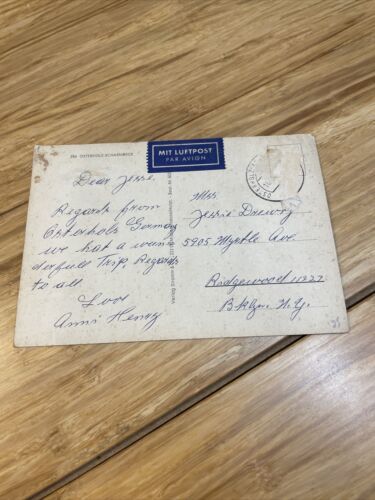 286 OSTERHOLZ-SCHARMBECK
MIT LUFTPOST
PAR AVION
Dear Jessie.
Regards from
Osterholz Germany
we hat a wun
derfull Trip, Regards
to all
Love
Anni Henry
Miss
Jessie Drewry
5905 Myrtle Ave
Ridgewood 11227
Bklyn. N.Y.